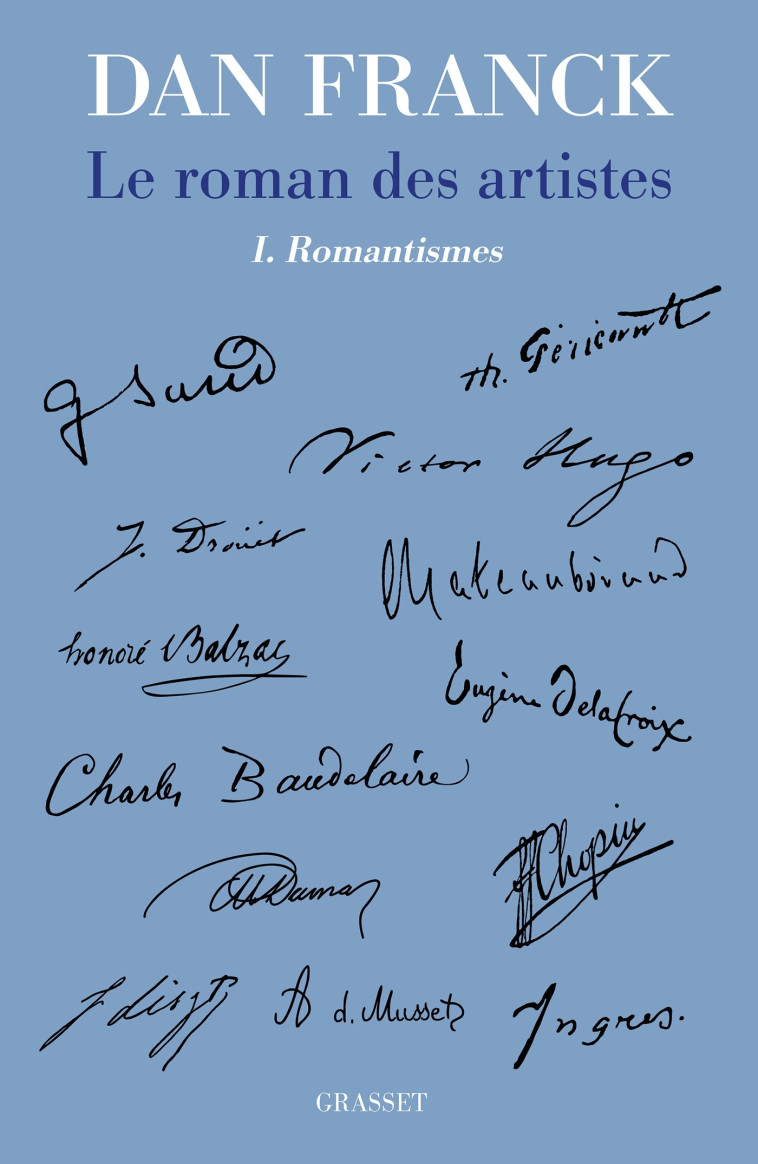 DAN FRANCK
Le roman des artistes
I. Romantismes
G Sand
Th. Géricault
Victor Hugo
J. Drouet
Chateaubriand
honoré Balzac
Eugène Delacroix
Charles Baudelaire
Chopin
Dumas
F. Liszt
A d. Musset
Ingres.
GRASSET